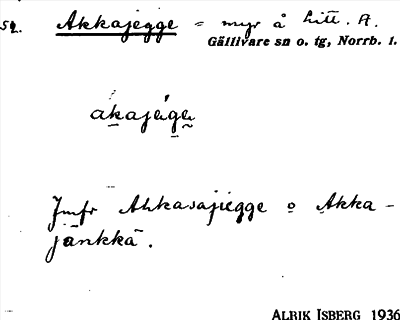 52. Akkajegge = myr å hitt. A.
Gällivare sn o. tg, Norrb. l.
akajega
Jmfr Ahkasajiegge o Akka-
jänkkä.
ALRIK ISBERG 1936